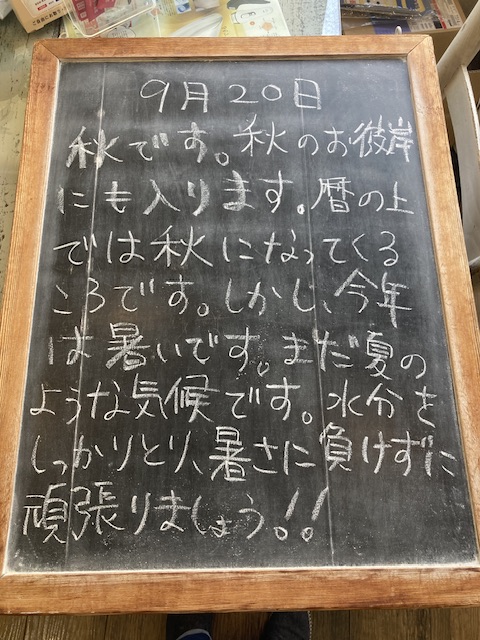 9月20日
秋です。秋のお彼岸
にも入ります。暦の上
では秋になってくる
ころです。しかし、今年
は暑いです。まだ夏の
ような気候です。水分を
しっかりとり、暑さに負けずに
頑張りましょう!!